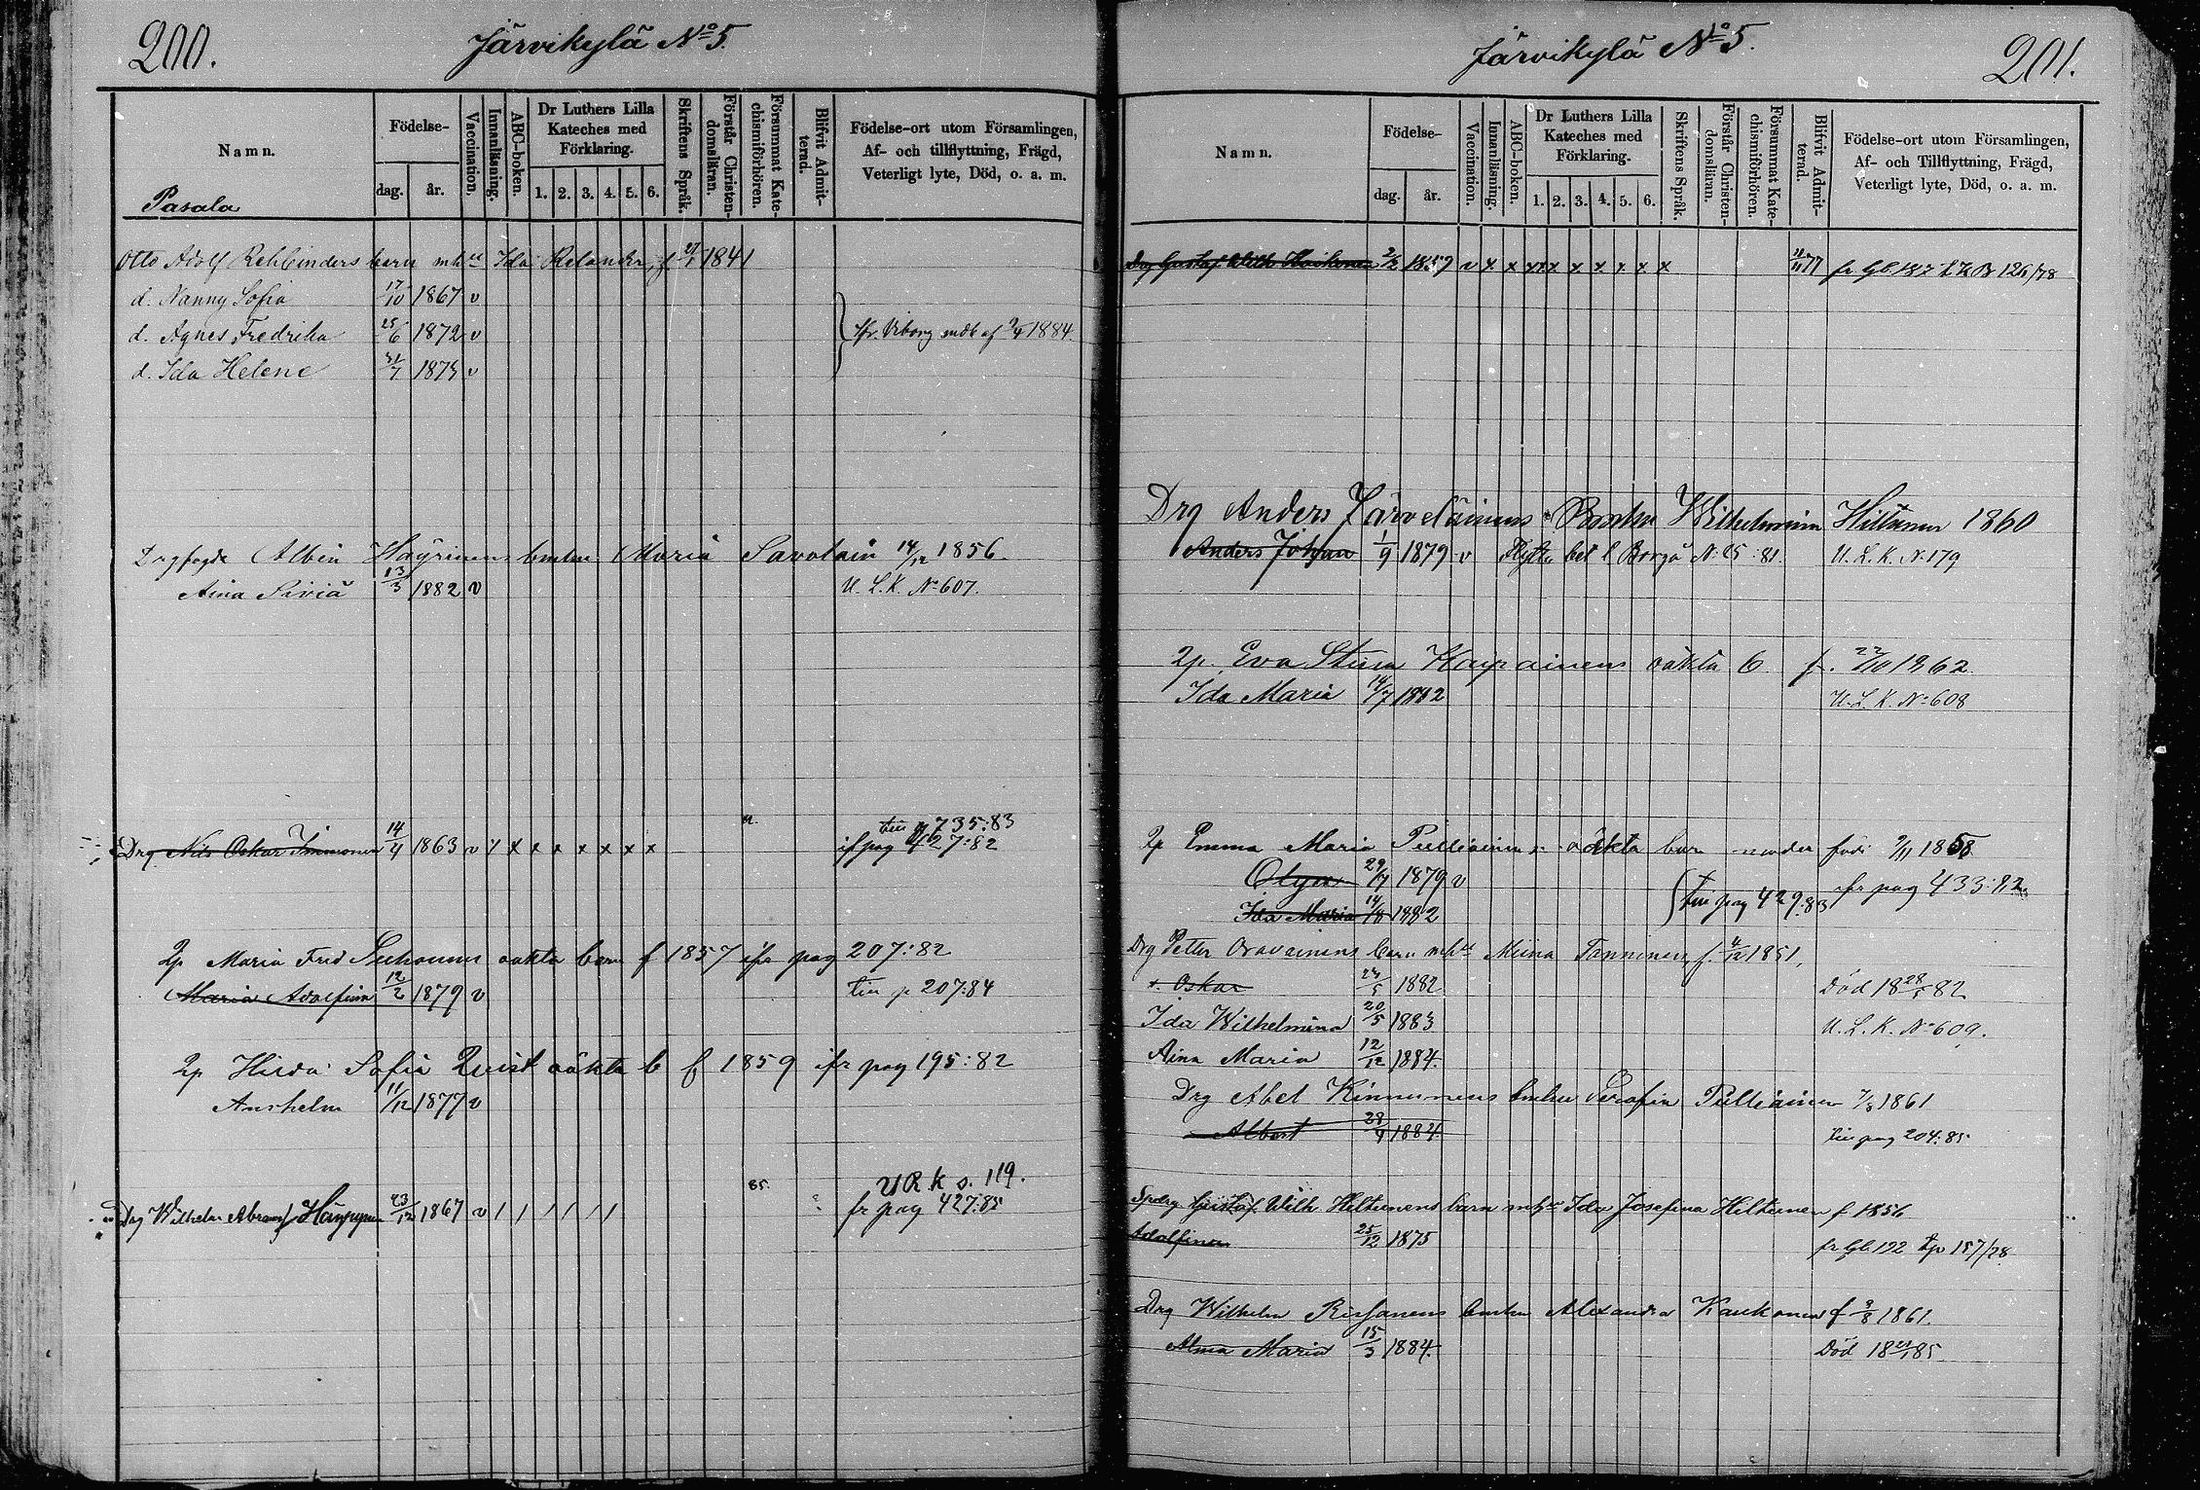 200.
Järvikylä No 5.
Namn.
Födelse-
dag.
år.
Vaccination.
Innanläsning.
ABC-boken.
Dr Luthers Lilla
Kateches med
Förklaring.
1. 2. 3. 4. 5. 6.
Skriftens Språk.
Förstår Christen-
domsläran.
Försummat Kate-
chismiförhören.
Blifvit Admit-
terad.
Födelse-ort utom Församlingen,
Af- och tillflyttning, Frägd,
Veterligt lyte, Död, o. a. m.
Pasala
Otto Adolf Rehbinders barn mh Ida Relander, f 27/1 1841
d. Nanny Sofia 17/10 1867 v
d. Agnes Fredrika 25/6 1872 v ifr. Viborg mdb af 1884.
d. Ida Helene 31/7 1875 v
Drgfogde Albin Häyrinens Maria Savolain 14/12 1856.
Aina 13/3 1882 v U. L. K. No 607.
a. till p 735:83
Drg Nils Oskar Immonen 14/4 1863 v / x x x x x x x if pag 427:82
2p Maria Fred oäkta barn f 1857 ifr pag 207:82
Maria Adolfina 12/2 1879 v till p 207:84
2p Hilda Sofia Quist oäkta b f 1859 ifr pag 195:82
Anshelm 11/12 1877 v
85. U R k s. 119.
Drg Wilhelm Abramsf Häyrynen 23/12 1867 v / / / / / / / fr pag 427:85
201.
Järvikylä No 5.
Namn.
Födelse-
dag.
år.
Vaccination.
Innanläsning.
ABC-boken.
Dr Luthers Lilla
Kateches med
Förklaring.
1. 2. 3. 4. 5. 6.
Skriftens Språk.
Förstår Christen-
domsläran.
Försummat Kate-
chismiförhören.
Blifvit Admit-
terad.
Födelse-ort utom Församlingen,
Af- och Tillflyttning, Frägd,
Veterligt lyte, Död, o. a. m.
Drg Gustaf Wilh 2/2 1859 v x x x x x x x x x x 77 fr Gb 187 126/78
Drg Anders Järveläinens Wilhelmina Hiltunen 1860
Anders Johan 1/9 1879 v Flytt. bet t Borgå N: 25:81. U. L. K. N. 179
2p. Eva Stina oäkta b f. 22/10 1862.
Ida Maria 14/7 1882 U. L. K. No 608
2p Emma Maria Pulliainens oäkta barn moder född 9/11 1858
Olga 29/7 1879 v ifr pag 433:82
Ida Maria 14/8 1882 till pag 429:83
Drg Petter Oravainens barn mh Miina Tanninen f. 4/12 1851.
s. Oskar 24/5 1882 Död 18 28/5 82
Ida Wilhelmina 20/5 1883 U. L. K. No 609.
Aina Maria 12/12 1884.
Drg Abel Kinnunens Serafia Pulliainen 1861
Albert 28/4 1884. till pag 204:85
Spdrg Gustaf Wilh Hiltunens barn mh Ida Josefina Hiltunen f 1856
Adolfina 25/12 1875 fr Gb 192 tp 157/78
Drg Wilhelm Alexandra Kaukonen f 3/8 1861.
Alma Maria 15/3 1884. Död 18 85.